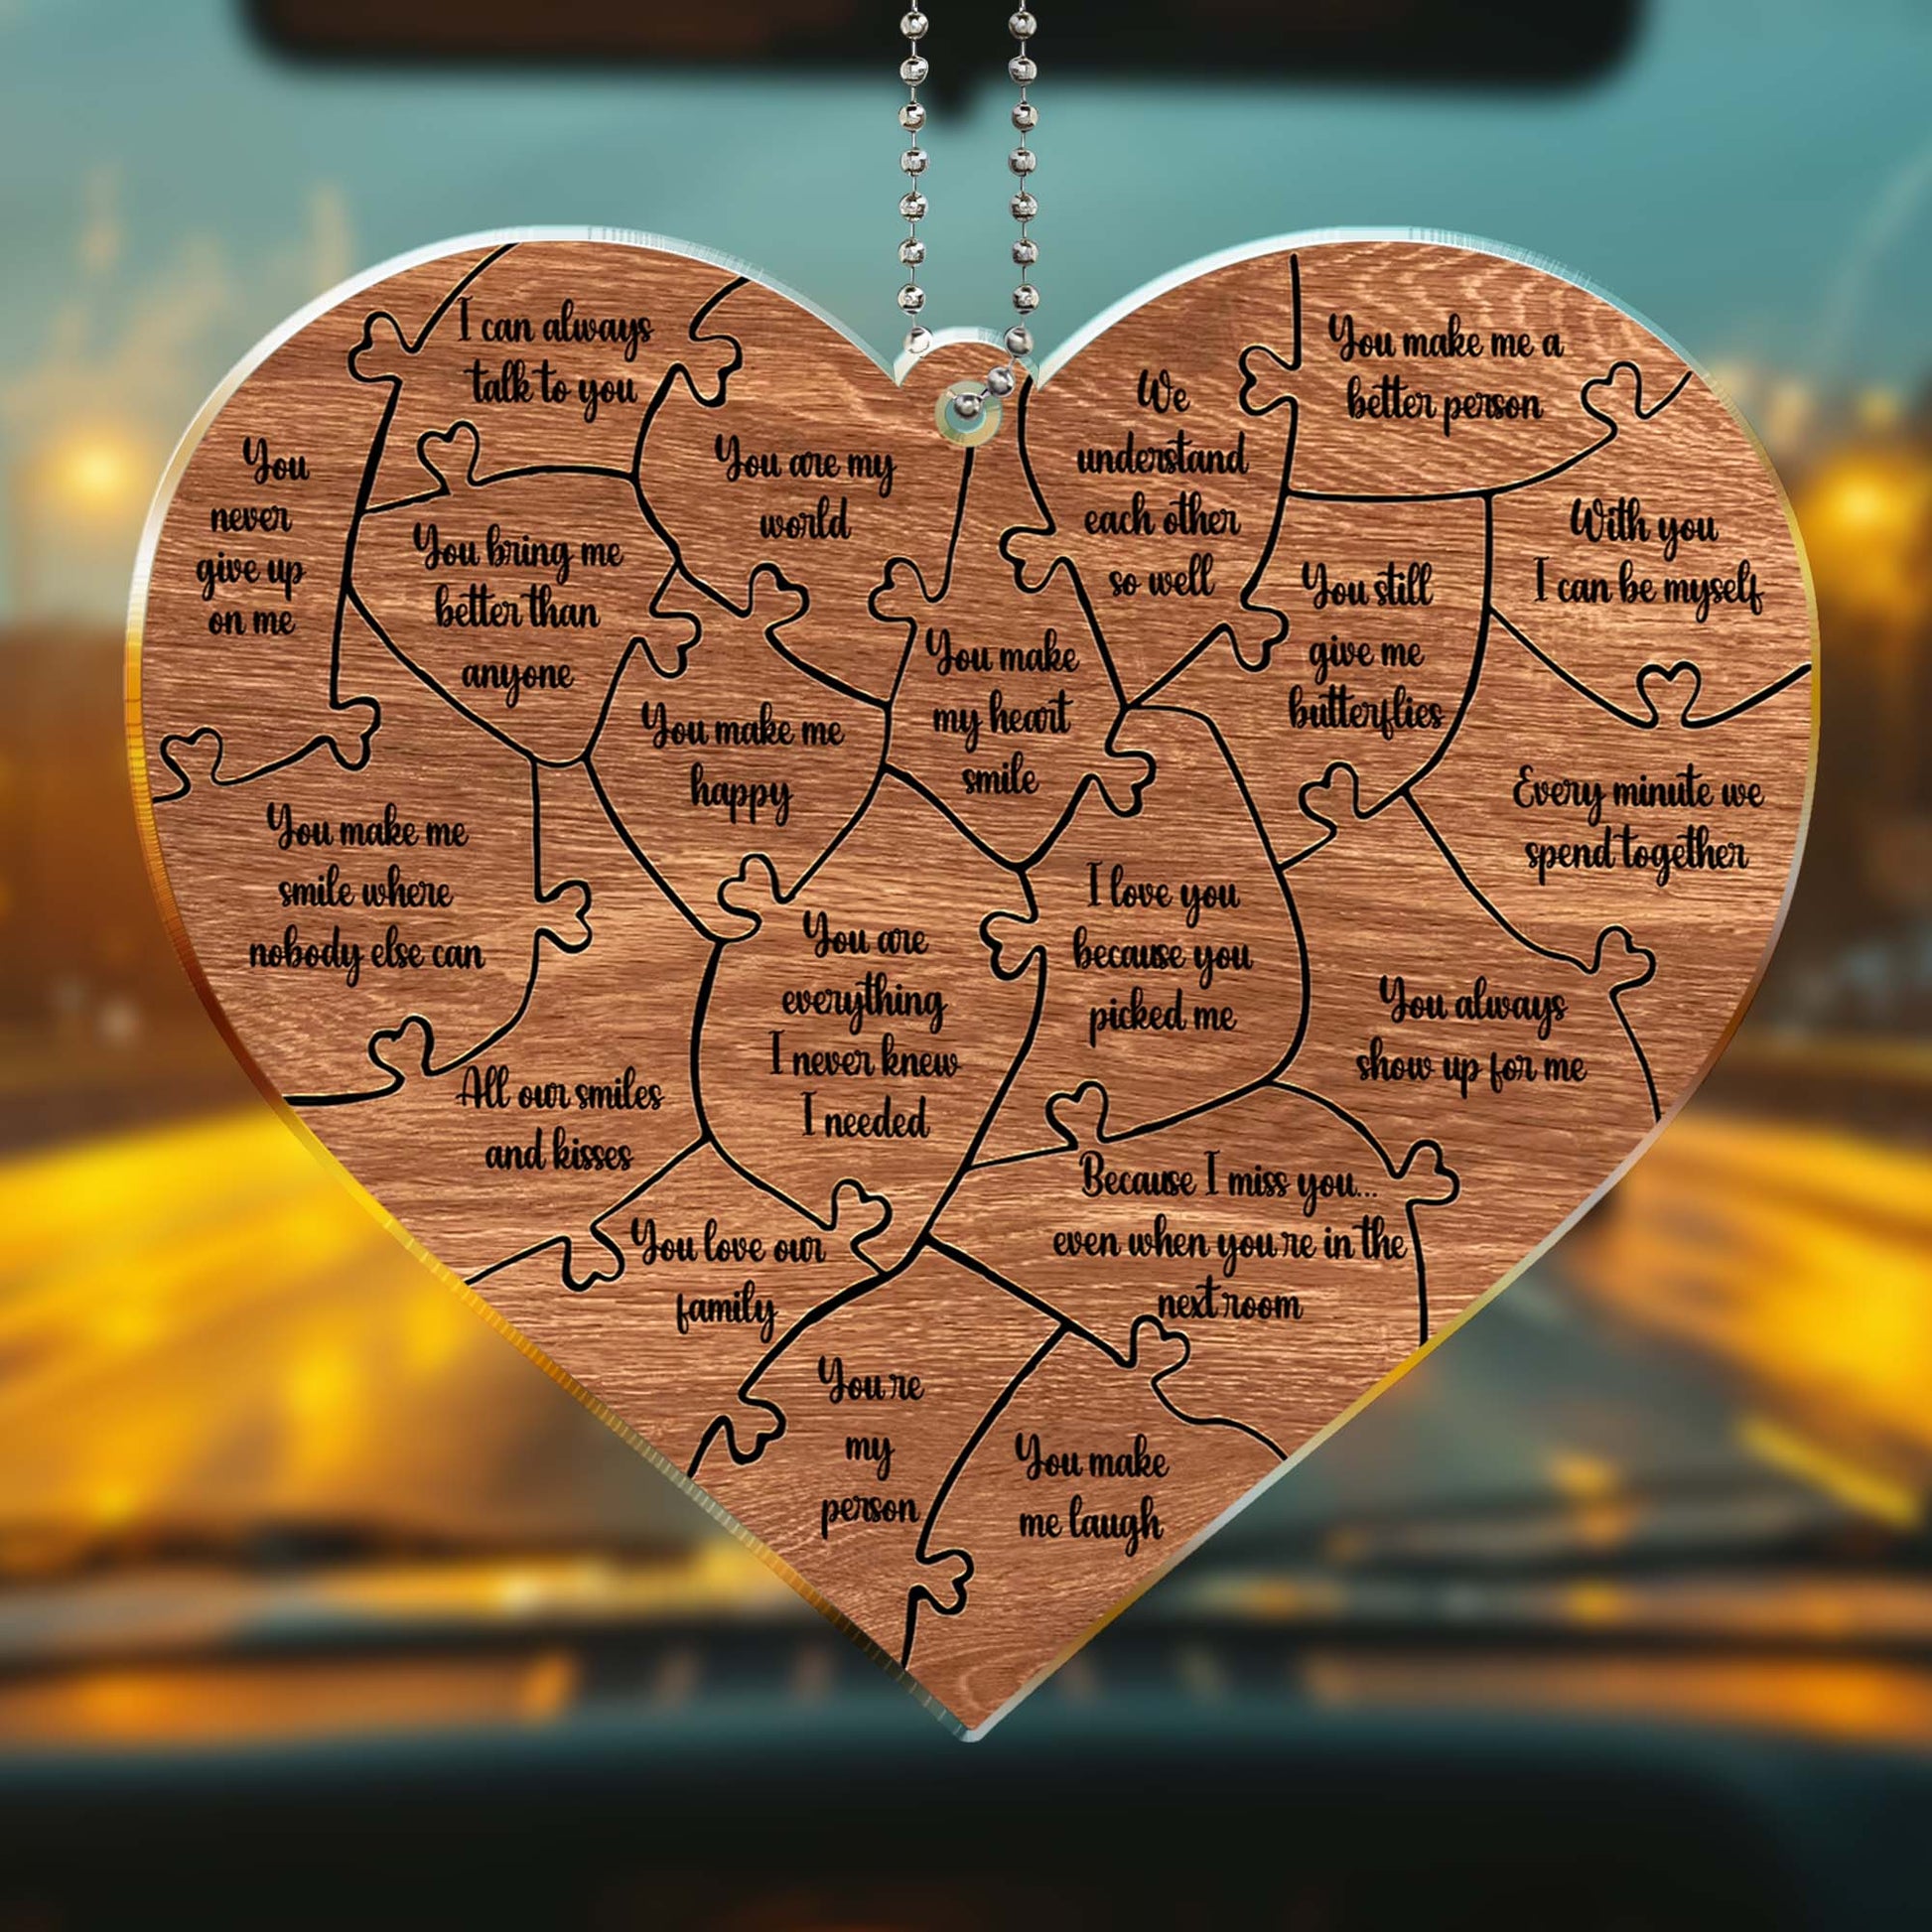 I can always
talk to you
You make me a
better person
You
never
give up
on me
You are my
world
We
understand
each other
so well
With you
I can be myself
You bring me
better than
anyone
You still
give me
butterflies
You make
my heart
smile
You make me
happy
Every minute we
spend together
You make me
smile where
nobody else can
I love you
because you
picked me
You are
everything
I never knew
I needed
You always
show up for me
All our smiles
and kisses
Because I miss you...
even when you're in the
next room
You love our
family
You're
my
person
You make
me laugh